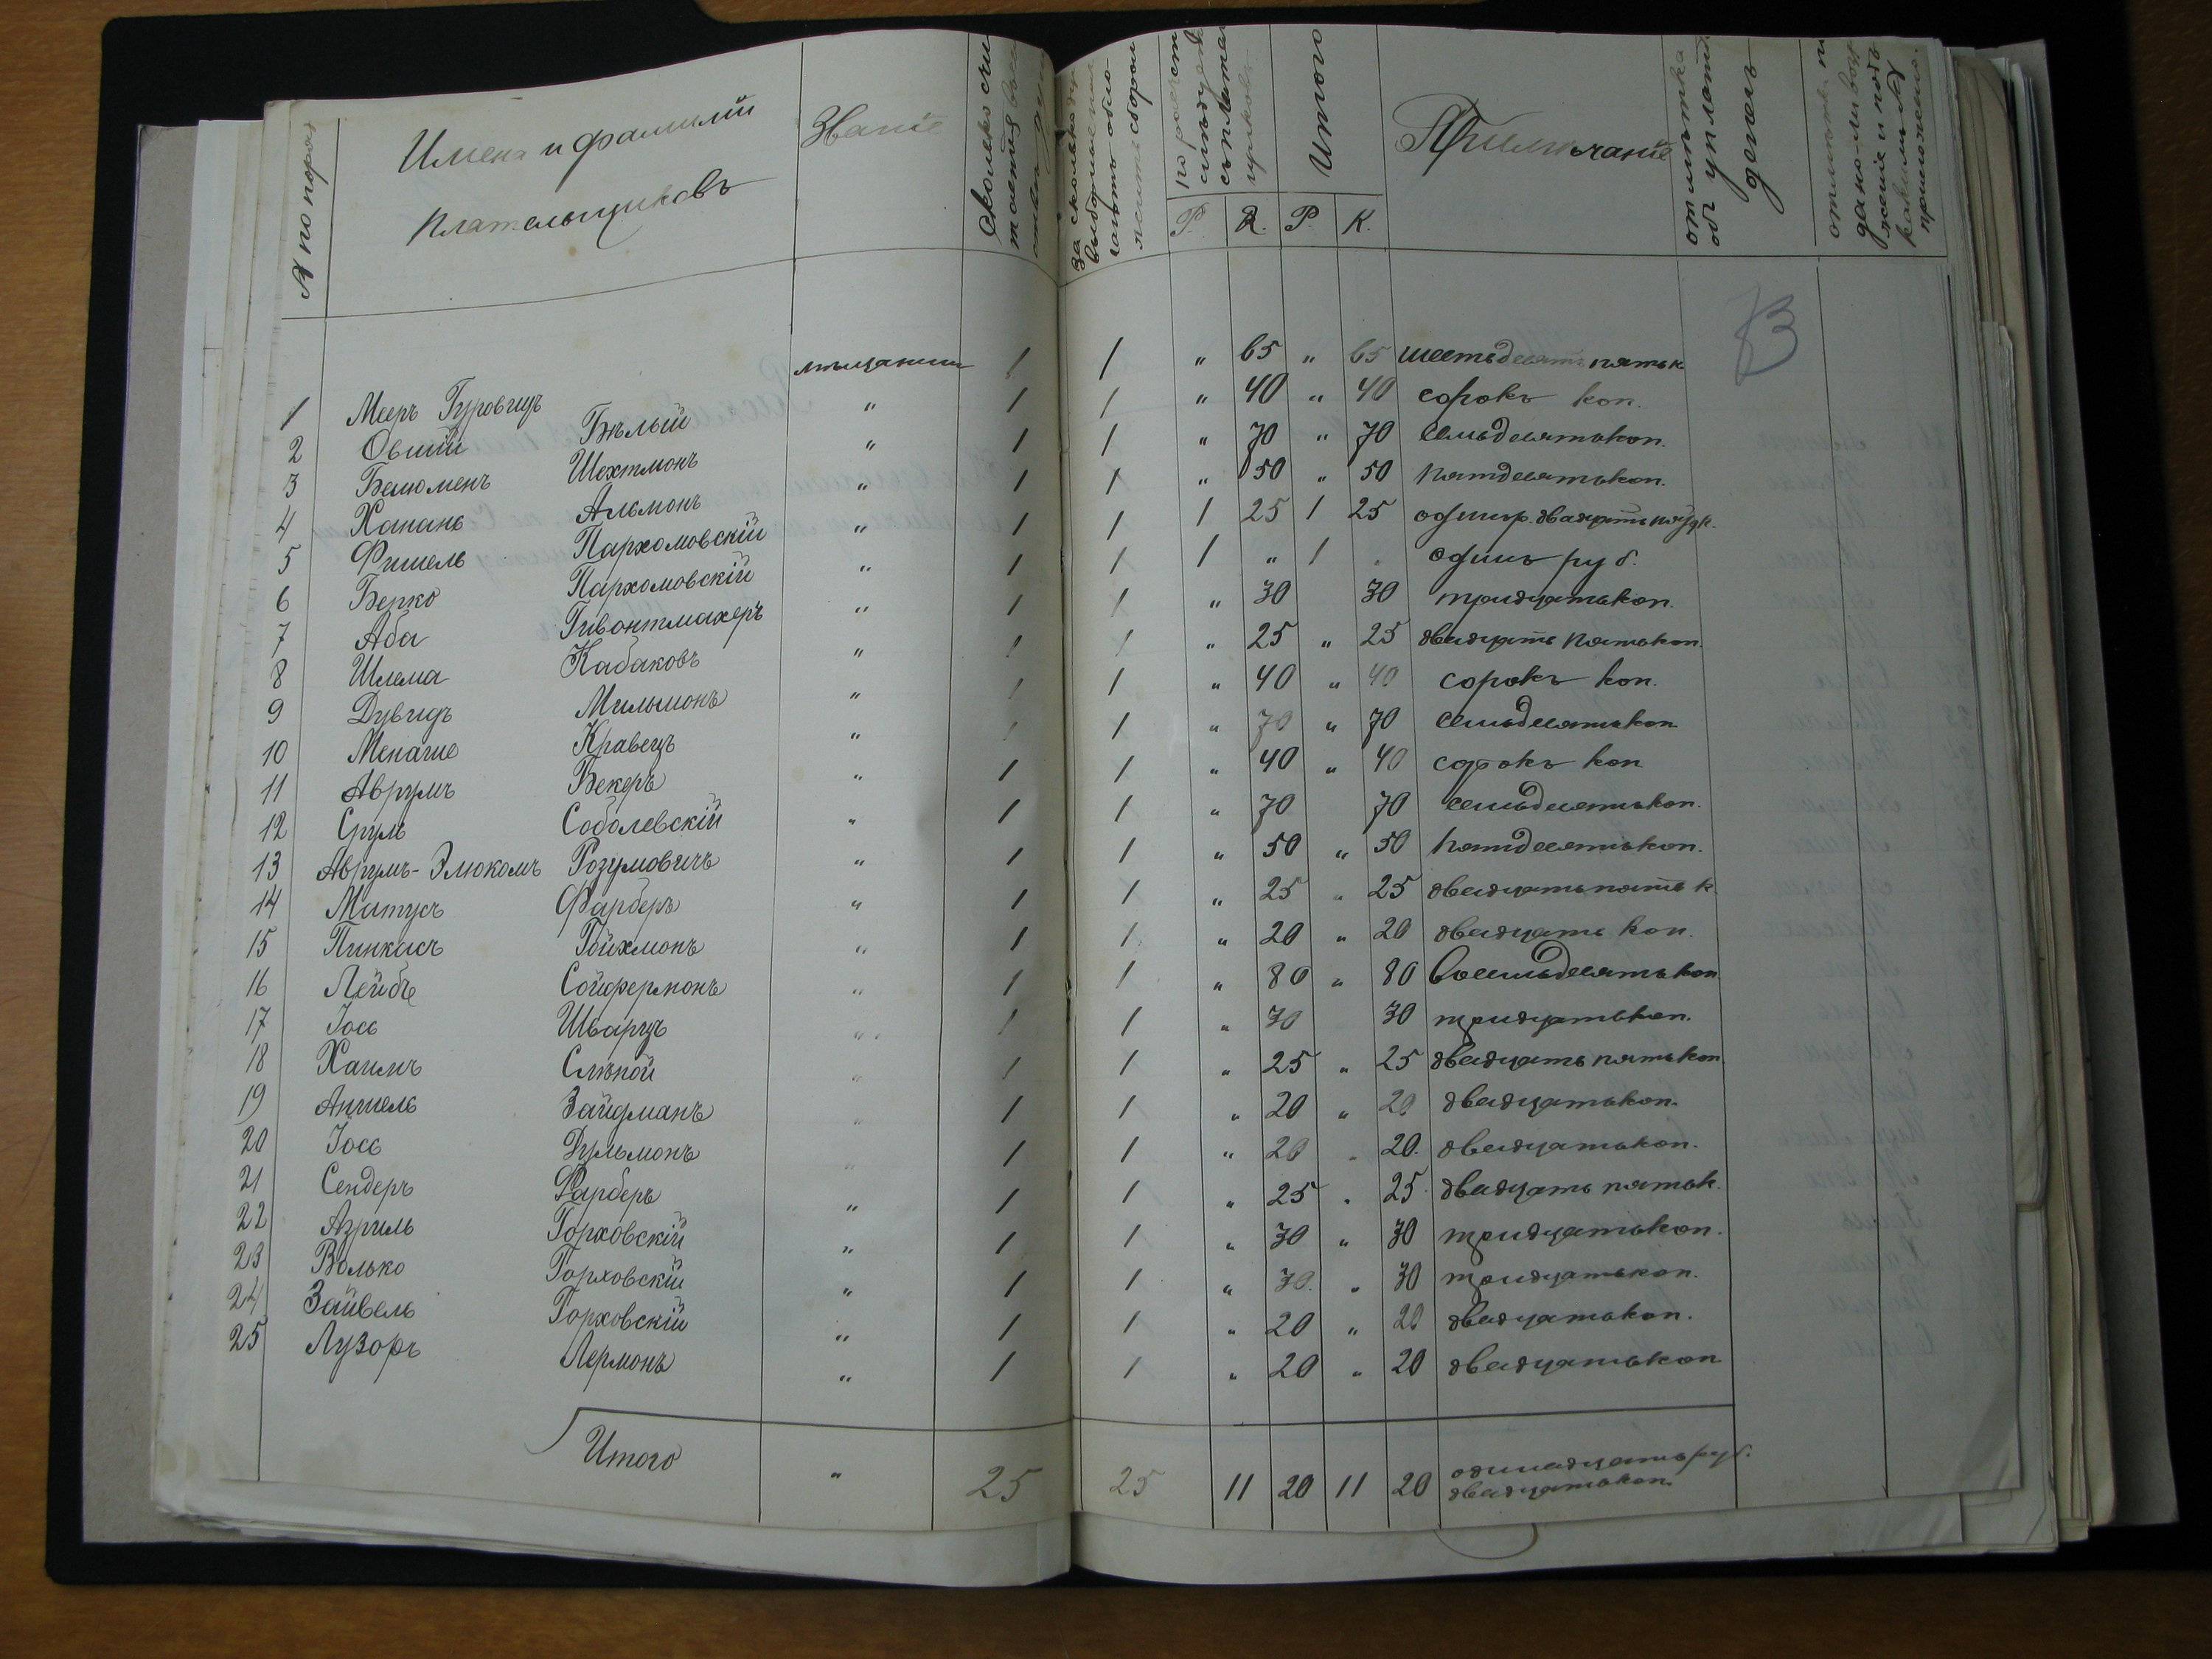 № по поряд
Имена и фамилiи
плательщиковъ
Званiе
Сколько счи
за сколько
сборомъ
Итого
Примѣчанiе
отмѣтка
объ уплатѣ
денегъ
приложено.
Р. К. Р. К.
73
1 Мееръ Гуровичъ мѣщанинъ 1 1 " 65 " 65 шестьдесятъ пять к
2 Овшiй Бѣлый " 1 1 " 40 " 40 сорокъ коп.
3 Бенюменъ Шехтмонъ " 1 1 " 70 " 70 семьдесятькоп.
4 Ханань Альмонъ " 1 1 " 50 " 50 пятдесятькоп.
5 Фишель Пархомовскiй " 1 1 1 25 1 25 одинр. двадцать пять к.
6 Берко Пархомовскiй " 1 1 1 " 1 . одинъ руб.
7 Аба Гивонтмахеръ " 1 1 " 30 30 тридцатькоп.
8 Шлема Кабаковъ " 1 1 " 25 " 25 двадцать пятькоп.
9 Дувидъ Мильмонъ " 1 1 " 40 " 40 сорокъ коп.
10 Менаше Кравецъ " 1 1 " 70 " 70 семьдесятькоп
11 Аврумъ Бекеръ " 1 1 " 40 " 40 сорокъ коп
12 Сруль Соболевскiй " 1 1 " 70 70 семьдесятькоп.
13 Аврумъ-Элюкомъ Розумовичъ " 1 1 " 50 " 50 пятдесятькоп.
14 Матусъ Фарберъ " 1 1 " 25 " 25 двадцатьпять к
15 Пинкасъ Гойхмонъ " 1 1 " 20 " 20 двадцать коп.
16 Лейбъ Сойфермонъ " 1 1 " 80 " 80 восемьдесятькоп
17 Iось Шварцъ " 1 1 " 30 30 тридцатькоп.
18 Хаимъ Слѣпой " 1 1 " 25 " 25 двадцать пятькоп
19 Аншель Зайдманъ " 1 1 " 20 " 20 двадцатькоп.
20 Iось Гульмонъ " 1 1 " 20 " 20. двадцатькоп.
21 Сендеръ Фарберъ " 1 1 " 25 " 25 двадцать пятьк.
22 Азриль Горховскiй " 1 1 " 30 " 30 тридцатькоп.
23 Волько Горховскiй " 1 1 " 30. " 30 тридцатькоп.
24 Зайвель Горховскiй " 1 1 " 20 " 20 двадцатькоп.
25 Лузоръ Лермонъ " 1 1 " 20 " 20 двадцатькоп
Итого " 25 25 11 20 11 20 одинадцатьруб.
двадцатькоп.